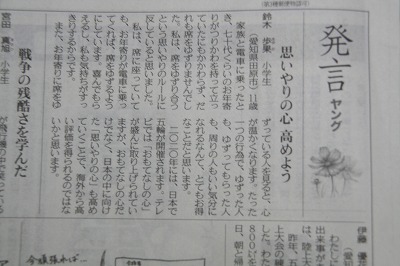 (第3種郵便物認可)
発言
ヤング
思いやりの心 高めよう
鈴木 歩果 小学生
(愛知県田原市) 11歳
家族と電車に乗ったと
き、七十代くらいのお寄
りがつりかわを持って立っ
ていたにもかかわらず、だ
れも席をゆずりませんでし
た。私は、席をゆずり合う
という思いやりのルールに
反していると思いました。
私は、席に座っていて
も、お年寄りが電車に乗っ
てくれば、席をゆずるよう
にしています。喜んでもら
えるし、心も気持ちがすっ
きりするからです。
また、お年寄りに席をゆ
ずっている人を見ると、心
が温かくなります。たった
一つの行為で、ゆずった人
も、ゆずってもらった人
も、周りの人もいい気分に
なれるなんて、とてもお得
なことだと思います。
二〇二〇年には、日本で
五輪が開催されます。テレ
ビでは「おもてなしの心」
が盛んに取り上げられてい
ますが、おもてなしの心だ
けでなく、日本の中に向け
た「思いやりの心」も高め
ていくことで、海外から高
い評価を得られるのではな
いかと思います。
戦争の残酷さを学んだ
宮田 真旭 小学生
伊藤 優
(愛知